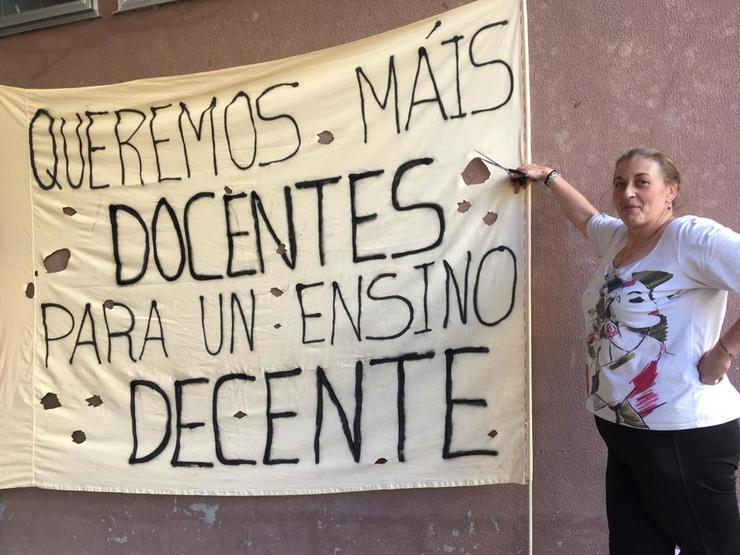 QUEREMOS MÁIS
DOCENTES
PARA UN ENSINO
DECENTE